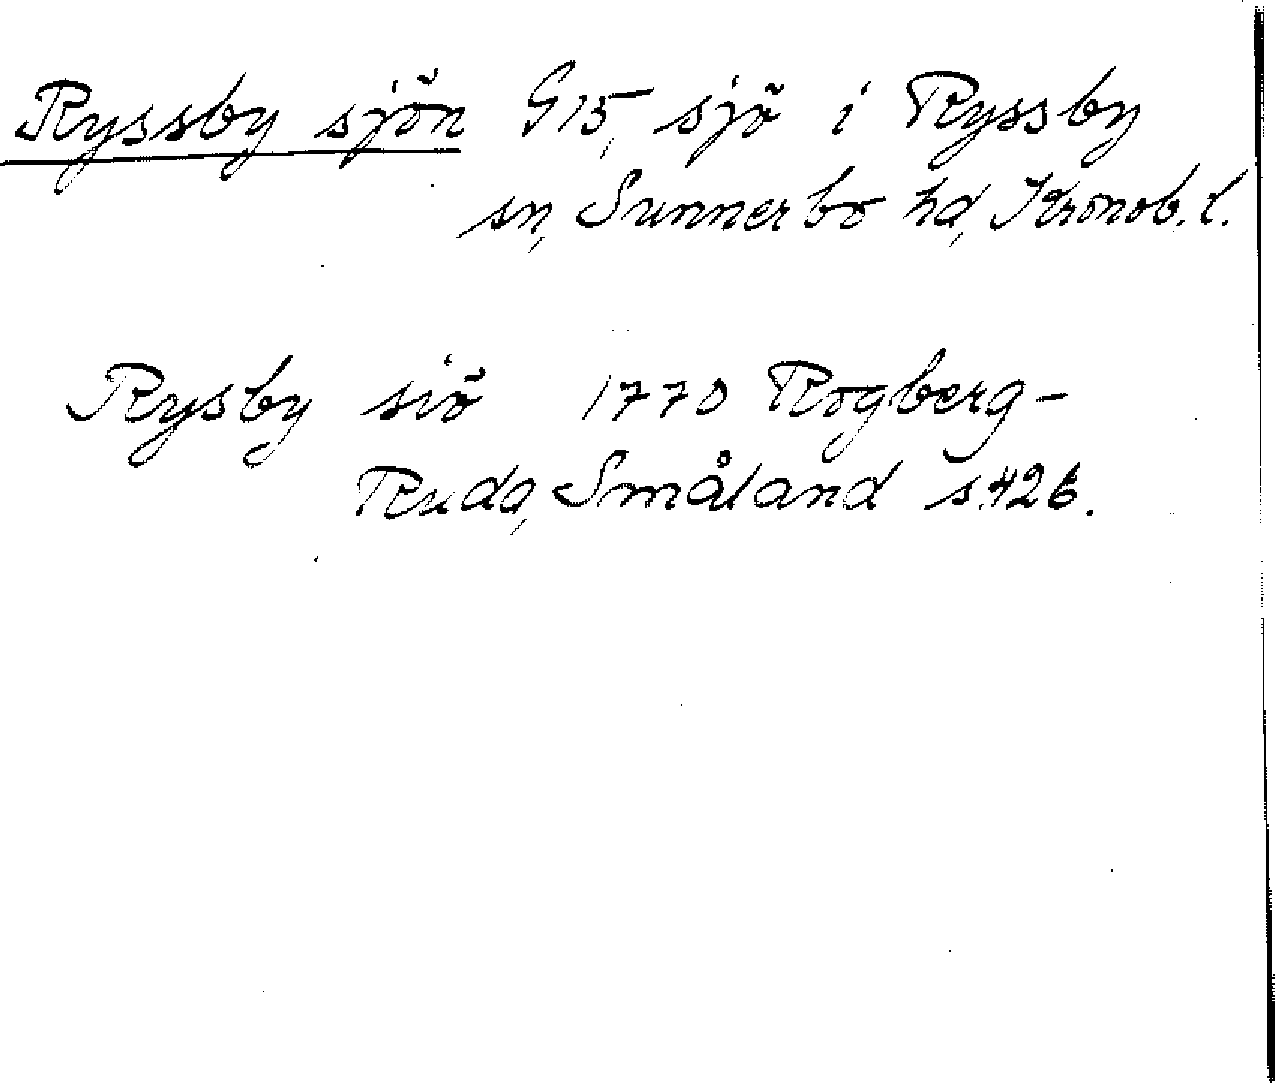 Ryssby sjön G15, sjö i Ryssby
sn, Sunnerbo hd, Kronob. l.
Rysby siö 1770 Rogberg-
Ruda, Småland s. 426.